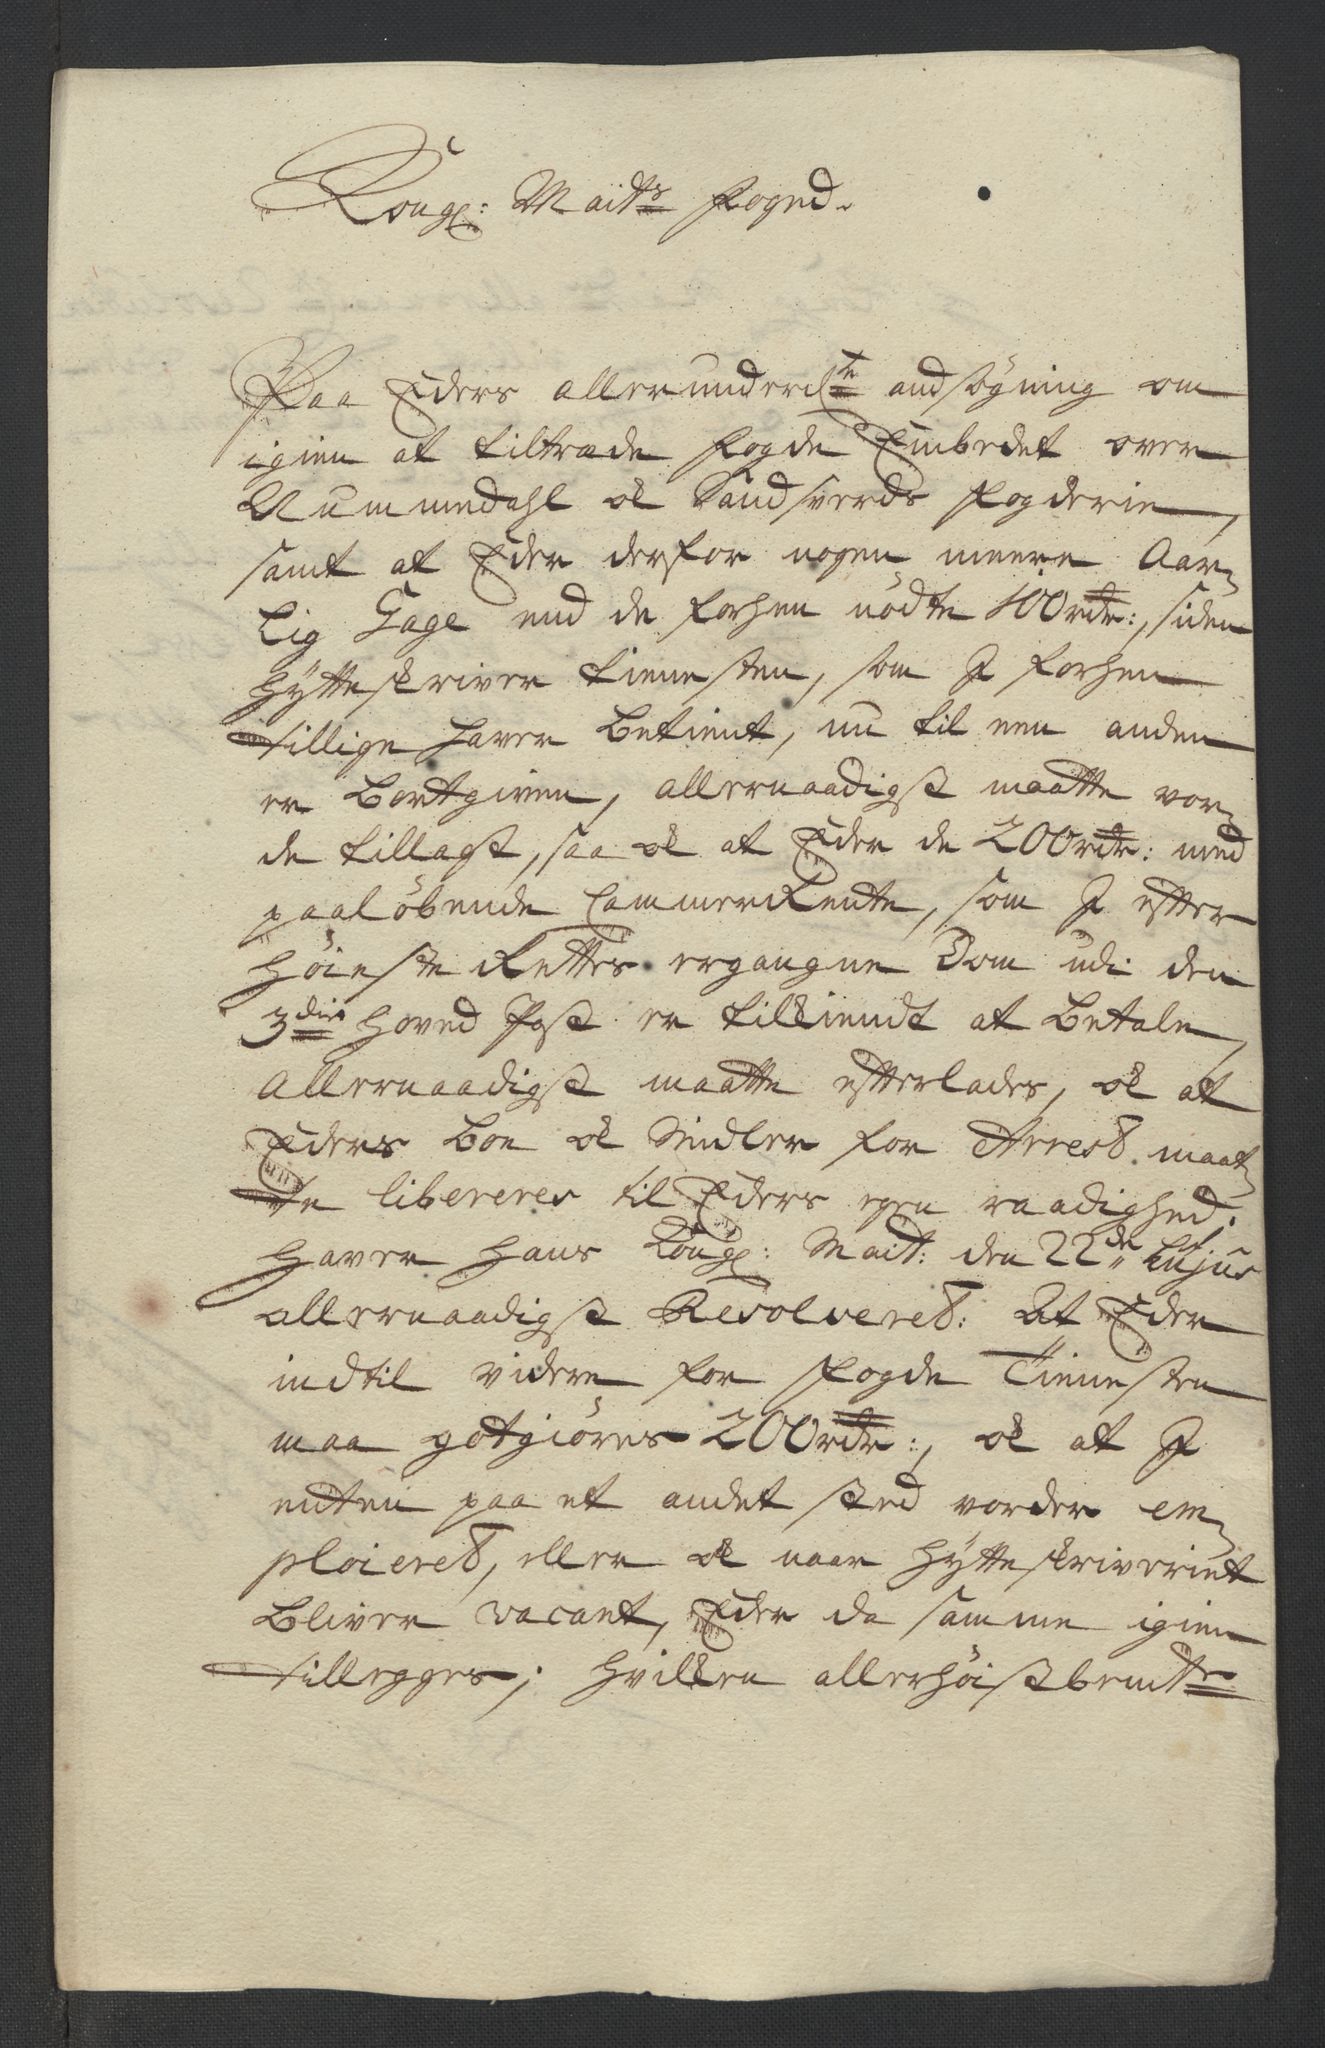 Kongl: Maits Foged.
Paa Eders allerunderdste andsøgning om
igien at tiltræde Fogde Embedet over
Nummedahl oc Sandsverds Fogderie,
samt at Eder derfor nogen meere Aar-
lig Gage end de forhen nödte 100 rdr:, siden
Hytteskriver tienesten, som I forhen
tillige haver betient, nu til een anden
er bortgiven, allernaadigst maatte vor-
de tillagt, saa oc at Eder de 200 rdr: med
paalöbende Cammer Rente, som I efter
Höieste Rettes ergangne Dom udi den
3die Hoved Post er tilkiendt at betale,
allernaadigst maatte efterlades, oc at
Eders Boe oc Midler for Arrest maat-
te libereres til Eders egen raadighed.
Haver Hans Kongl: Mait: den 22de hujus
allernaadigst Resolveret: At Eder
indtil videre for Fogde Tienesten
maa gotgiöres 200 rdr:, oc at I
enten paa et andet sted vorder em-
ploieret, eller oc naar Hytteskriveriet
bliver vacant, Eder da samme igien
tillegges; Hvilken allerhöistbemte